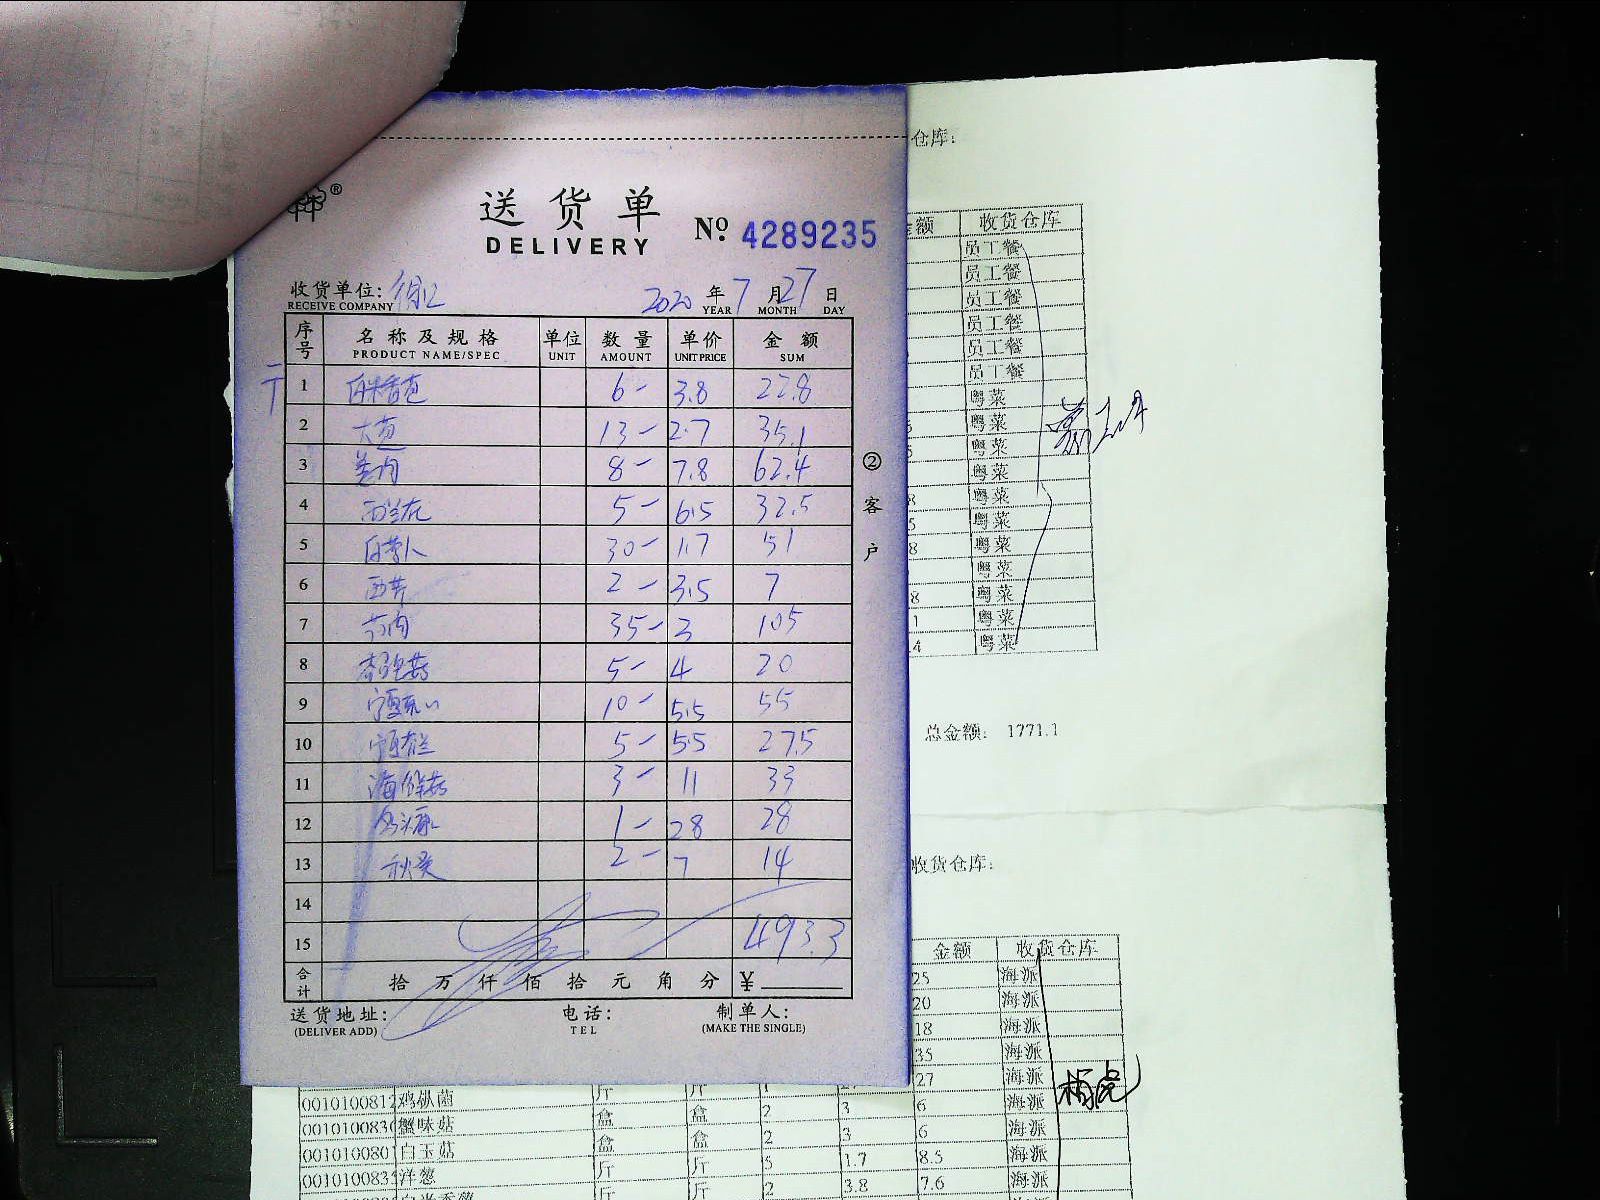 仓库：
送货单
DELIVERY
№ 4289235
收货单位：徐汇 2020 年 7 月 27 日
RECEIVE COMPANY YEAR MONTH DAY
序号 名称及规格 单位 数量 单价 金额
PRODUCT NAME/SPEC UNIT AMOUNT UNIT PRICE SUM
1 白米香葱 6- 3.8 22.8
2 大葱 13- 2.7 35.1
3 姜肉 8- 7.8 62.4
4 西兰花 5- 6.5 32.5
5 白萝卜 30- 1.7 51
6 西芹 2- 3.5 7
7 35- 3 105
8 杏鲍菇 5- 4 20
9 10- 5.5 55
10 5- 5.5 27.5
11 海鲜菇 3- 11 33
12 1- 28 28
13 秋葵 2- 7 14
14
15 493.3
合计 拾 万 仟 佰 拾 元 角 分 ¥
送货地址： 电话： 制单人：
(DELIVER ADD) TEL (MAKE THE SINGLE)
②客户
额 收货仓库
员工餐
员工餐
员工餐
员工餐
员工餐
员工餐
粤菜
粤菜
粤菜
粤菜
粤菜
粤菜
粤菜
粤菜
8 粤菜
1 粤菜
.4 粤菜
总金额： 1771.1
收货仓库：
金额 收货仓库
25 海派
20 海派
18 海派
35 海派
27 海派
001010081 鸡枞菌 斤 斤 6 海派
001010083 蟹味菇 盒 盒 2 3 6 海派
001010080 白玉菇 盒 盒 2 3 8.5 海派
001010083 洋葱 斤 斤 5 1.7 7.6 海派
斤 斤 2 3.8